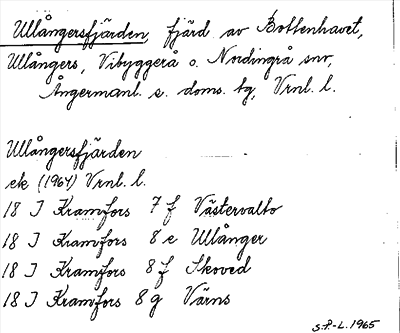 Ullångersfjärden, fjärd av Bottenhavet,
Ullångers, Vibyggerå o. Nordingrå snr,
Ångermanl. s. doms. tg, Vrnl. l.
Ullångersfjärden
ek (1964) Vrnl. l.
18 I Kramfors 7 f Västervalto
18 I Kramfors 8 e Ullånger
18 I Kramfors 8 f Skoved
18 I Kramfors 8 g Värns
S.P.-L. 1965